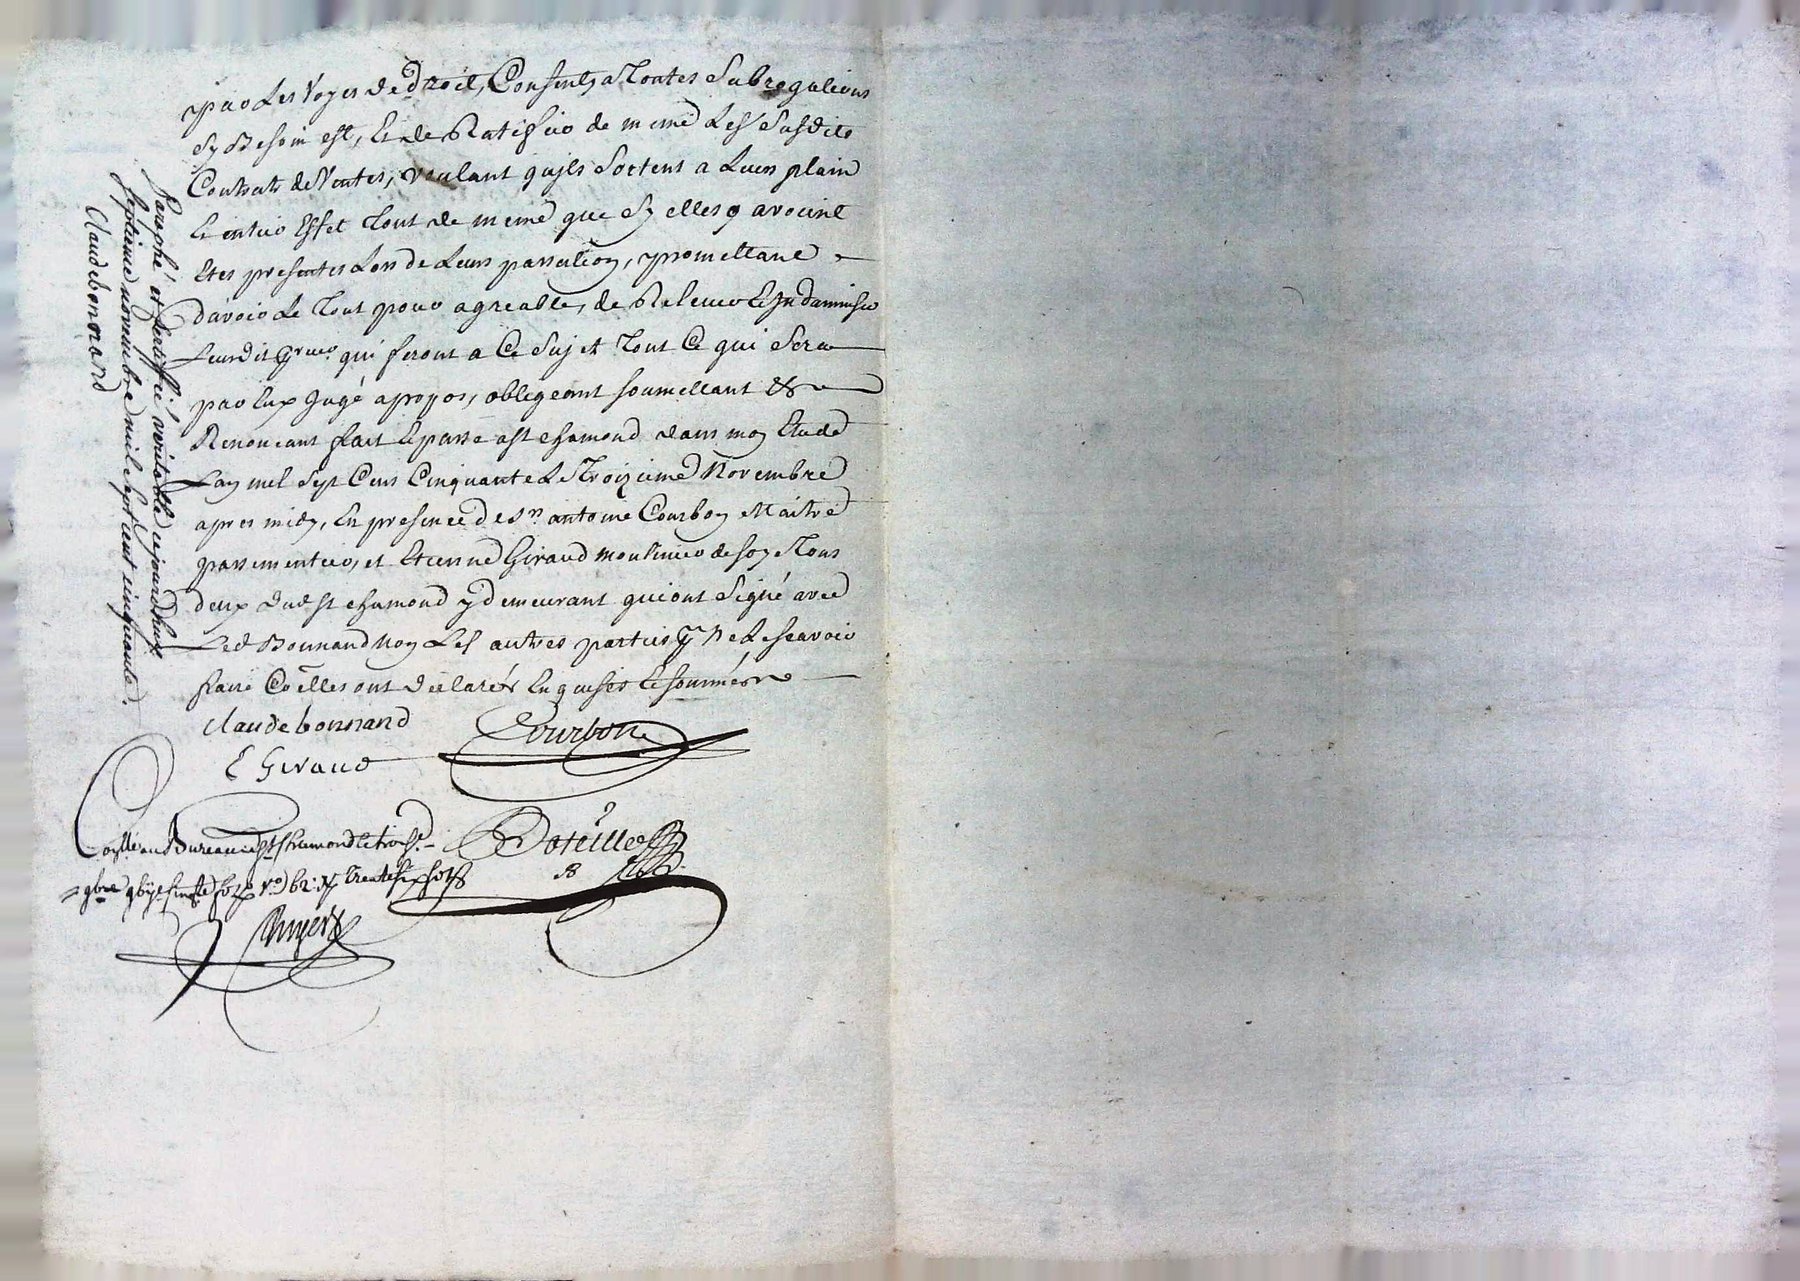 par Les Voyes de droit, Consentir a Toutes Subrogations
sy Besoin est, Et de Ratiffier de meme Les Susdits
Contrats de Ventes, voulant quils Sortent a Leur plain
Et entier Effet Tout de meme que sy elles y avoient
Etes presentes Lors de Leurs passation, promettant
d'avoir Le Tout pour agreable, de Relever et Indamniser
Leurdit qui feront a Ce Sujet Tout Ce qui Sera
par Eux Jugé apropos, obligeant soumettant &
Renonçant fait Et passé a St chamond dans moy Etude
Lan mil sept Cens Cinquante Le Troizieme Novembre
apres midy, En presence de sr. antoine Courbon Maitre
passementier, et Etienne Giraud moulinier de soye Tous
deux dud St chamond y demeurant qui ont Signé avec
Led Bonnand non Les autres parties pr Ne Le scavoir
faire Co elles ont declarées Enquises Et sommées
claude bonnand Courbon
E Giraud
Dateille
au Bureau de St Chamond le
9bre trente six sols
Paraphé et certiffié veritable cejourdhuy
septieme novembre mil sept cent cinquante.
Claude bonnand